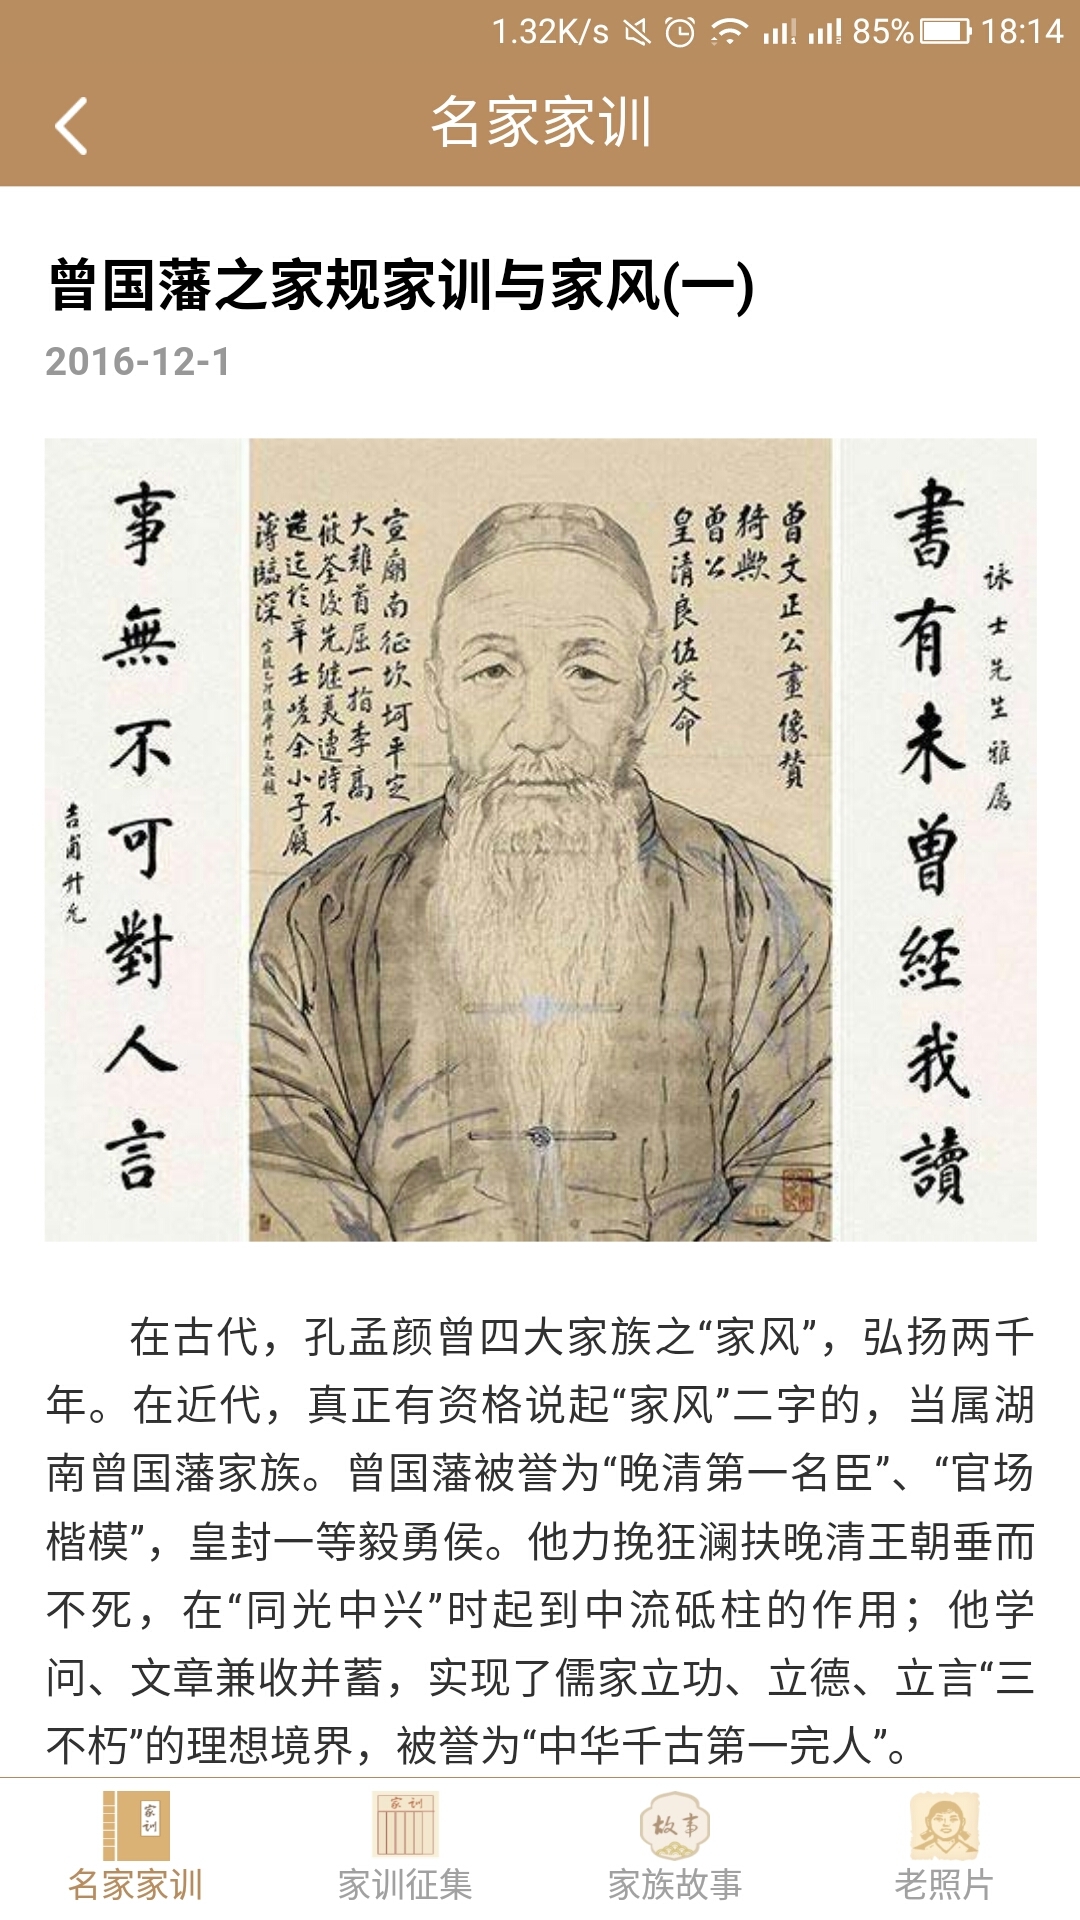 1.32K/s 85% 18:14
名家家训
曾国藩之家规家训与家风(一)
2016-12-1
書有未曾經我讀
詠士先生雅屬
曾文正公畫像贊
猗歟
曾公
皇清良佐受命
宣廟南征坎坷平定
大難首屈一指季高
筱荃後先繼美遭時不
造迄於辛壬嗟余小子履
薄臨深
事無不可對人言
吉甫升允
在古代，孔孟颜曾四大家族之“家风”，弘扬两千
年。在近代，真正有资格说起“家风”二字的，当属湖
南曾国藩家族。曾国藩被誉为“晚清第一名臣”、“官场
楷模”，皇封一等毅勇侯。他力挽狂澜扶晚清王朝垂而
不死，在“同光中兴”时起到中流砥柱的作用；他学
问、文章兼收并蓄，实现了儒家立功、立德、立言“三
不朽”的理想境界，被誉为“中华千古第一完人”。
家训
家训
故事
名家家训 家训征集 家族故事 老照片